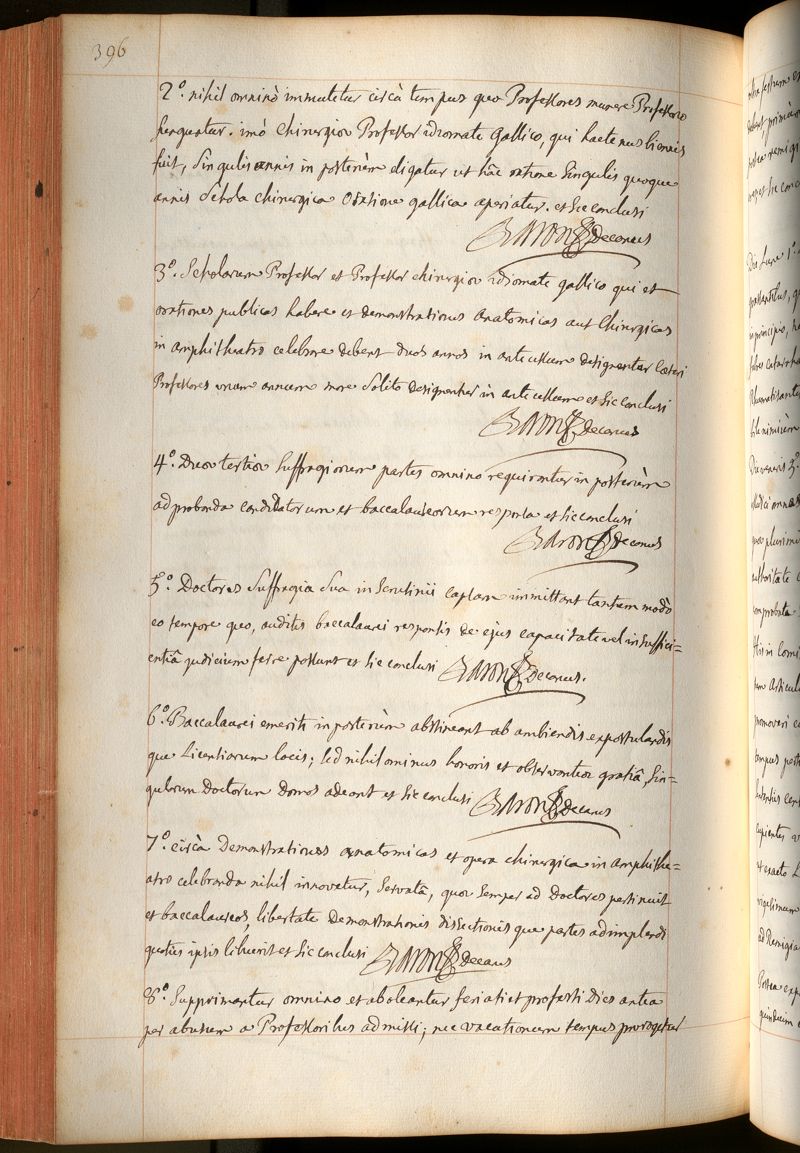 396
2°. nihil omninò immutetur circà tempus quo Professores munere Professorio
funguntur. imò chirurgiæ Professor idiomate Gallico, qui hactenus biennis
fuit, singulis annis in posterùm eligatur ut hâc ratione singulis quoque
annis schola chirurgica oratione gallica aperiatur. et sic conclusi
Baron Decanus
3°. Scholarum Professor et Professor chirurgiæ idiomate gallico qui et
orationes publicas habere et demonstrationes anatomicas aut chirurgicas
in amphitheatro celebrare debent duos annos in antecessum designentur cæteri
Professores unum annum more solito designentur in antecessum et sic conclusi
Baron Decanus
4°. Duæ tertiæ suffragiorum partes omnino requirantur in posterùm
ad probanda candidatorum et baccalaureorum responsa et sic conclusi
Baron Decanus
5°. Doctores suffragia sua in scrutinii capsam immittant tantum modò
eo tempore quo, auditis baccalaurei responsis de ejus capacitate vel insuffici=
entiâ judicium ferre possunt et sic conclusi Baron Decanus.
6°. Baccalaurei emeriti in posterùm abstineant ab ambiendis expostulandis
que Licentiarum locis; sed nihilominus honoris et observantiæ gratiâ, sin=
gulorum Doctorum domos adeant et sic conclusi Baron Decanus
7°. circà Demonstrationes anatomicas et opera chirurgica in amphithe=
atro celebranda nihil innovetur, servatâ, quæ semper ad Doctores pertinuit
et baccalaureos, libertate Demonstrationis dissectionis que partes adimplendi
quoties ipsis libuerit et sic conclusi Baron Decanus
8°. Supprimantur omnino et aboleantur feriati et profesti Dies antea
per abusum a Professoribus admissi; nec vacationum tempus prorogetur